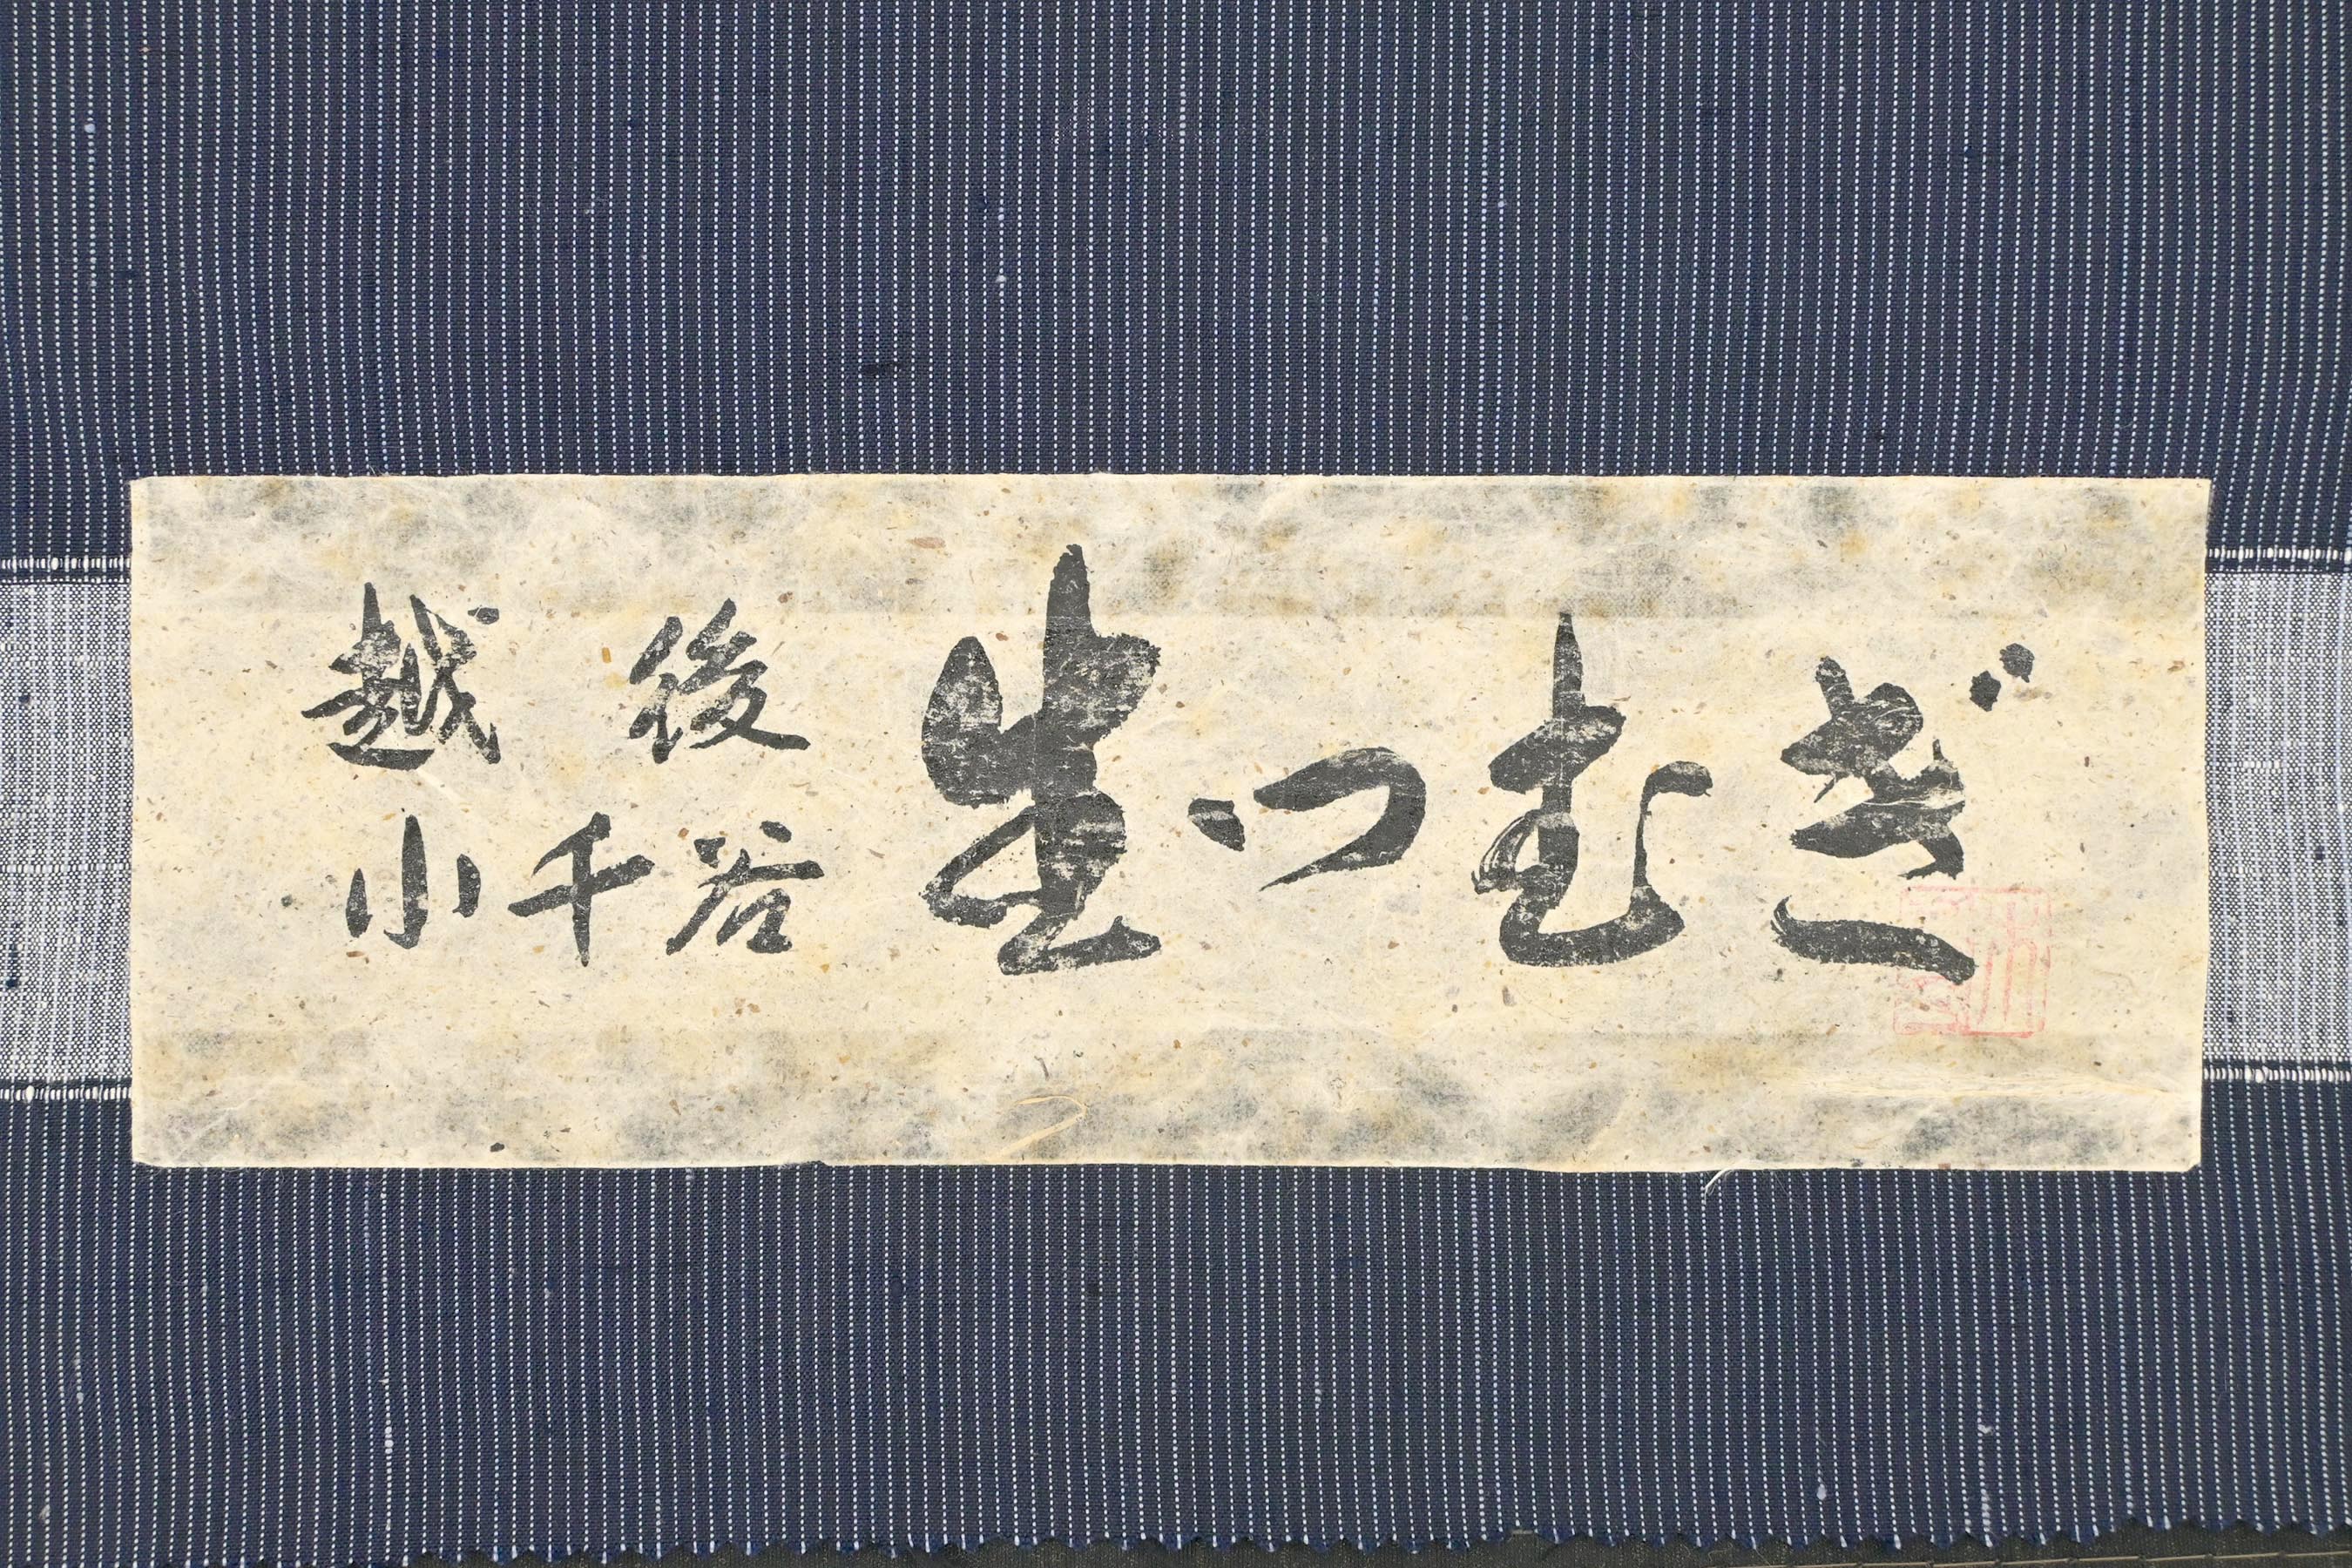 越後
小千谷
生つむぎ